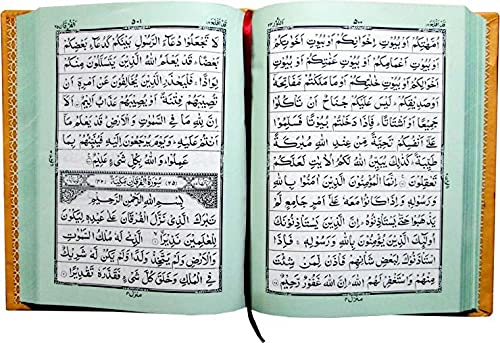 النور ٢٤
٥٠٠
قد افلح ١٨
اُمَّهٰتِكُمْ اَوْ بُيُوْتِ اِخْوَانِكُمْ اَوْ بُيُوْتِ اَخَوٰتِكُمْ
اَوْ بُيُوْتِ اَعْمَامِكُمْ اَوْ بُيُوْتِ عَمّٰتِكُمْ اَوْ بُيُوْتِ
اَخْوَالِكُمْ اَوْ بُيُوْتِ خٰلٰتِكُمْ اَوْ مَا مَلَكْتُمْ مَّفَاتِحَهٗٓ
اَوْ صَدِيْقِكُمْ ؕ لَيْسَ عَلَيْكُمْ جُنَاحٌ اَنْ تَاْكُلُوْا
جَمِيْعًا اَوْ اَشْتَاتًا ؕ فَاِذَا دَخَلْتُمْ بُيُوْتًا فَسَلِّمُوْا
عَلٰٓى اَنْفُسِكُمْ تَحِيَّةً مِّنْ عِنْدِ اللّٰهِ مُبٰرَكَةً
طَيِّبَةً ؕ كَذٰلِكَ يُبَيِّنُ اللّٰهُ لَكُمُ الْاٰيٰتِ لَعَلَّكُمْ
تَعْقِلُوْنَ اِنَّمَا الْمُؤْمِنُوْنَ الَّذِيْنَ اٰمَنُوْا بِاللّٰهِ
وَرَسُوْلِهٖ وَاِذَا كَانُوْا مَعَهٗ عَلٰٓى اَمْرٍ جَامِعٍ لَّمْ
يَذْهَبُوْا حَتّٰى يَسْتَاْذِنُوْهُ ؕ اِنَّ الَّذِيْنَ يَسْتَاْذِنُوْنَكَ
اُولٰٓئِكَ الَّذِيْنَ يُؤْمِنُوْنَ بِاللّٰهِ وَرَسُوْلِهٖ ۚ فَاِذَا
اسْتَاْذَنُوْكَ لِبَعْضِ شَاْنِهِمْ فَاْذَنْ لِّمَنْ شِئْتَ
مِنْهُمْ وَاسْتَغْفِرْ لَهُمُ اللّٰهَ ؕ اِنَّ اللّٰهَ غَفُوْرٌ رَّحِيْمٌ
منزل ٤
قد افلح ١٨
٥٠١
الفرقان ٢٥
لَا تَجْعَلُوْا دُعَآءَ الرَّسُوْلِ بَيْنَكُمْ كَدُعَآءِ بَعْضِكُمْ
بَعْضًا ؕ قَدْ يَعْلَمُ اللّٰهُ الَّذِيْنَ يَتَسَلَّلُوْنَ مِنْكُمْ
لِوَاذًا ۚ فَلْيَحْذَرِ الَّذِيْنَ يُخَالِفُوْنَ عَنْ اَمْرِهٖٓ اَنْ
تُصِيْبَهُمْ فِتْنَةٌ اَوْ يُصِيْبَهُمْ عَذَابٌ اَلِيْمٌ اَلَآ
اِنَّ لِلّٰهِ مَا فِى السَّمٰوٰتِ وَالْاَرْضِ ؕ قَدْ يَعْلَمُ مَآ
اَنْتُمْ عَلَيْهِ ؕ وَيَوْمَ يُرْجَعُوْنَ اِلَيْهِ فَيُنَبِّئُهُمْ بِمَا
عَمِلُوْا ؕ وَاللّٰهُ بِكُلِّ شَىْءٍ عَلِيْمٌ
(٢٥) سُوْرَةُ الْفُرْقَانِ مَكِّيَّةٌ (٤٢)
بِسْمِ اللّٰهِ الرَّحْمٰنِ الرَّحِيْمِ
تَبٰرَكَ الَّذِىْ نَزَّلَ الْفُرْقَانَ عَلٰى عَبْدِهٖ لِيَكُوْنَ
لِلْعٰلَمِيْنَ نَذِيْرًا الَّذِىْ لَهٗ مُلْكُ السَّمٰوٰتِ
وَالْاَرْضِ وَلَمْ يَتَّخِذْ وَلَدًا وَّلَمْ يَكُنْ لَّهٗ شَرِيْكٌ
فِى الْمُلْكِ وَخَلَقَ كُلَّ شَىْءٍ فَقَدَّرَهٗ تَقْدِيْرًا
منزل ٤